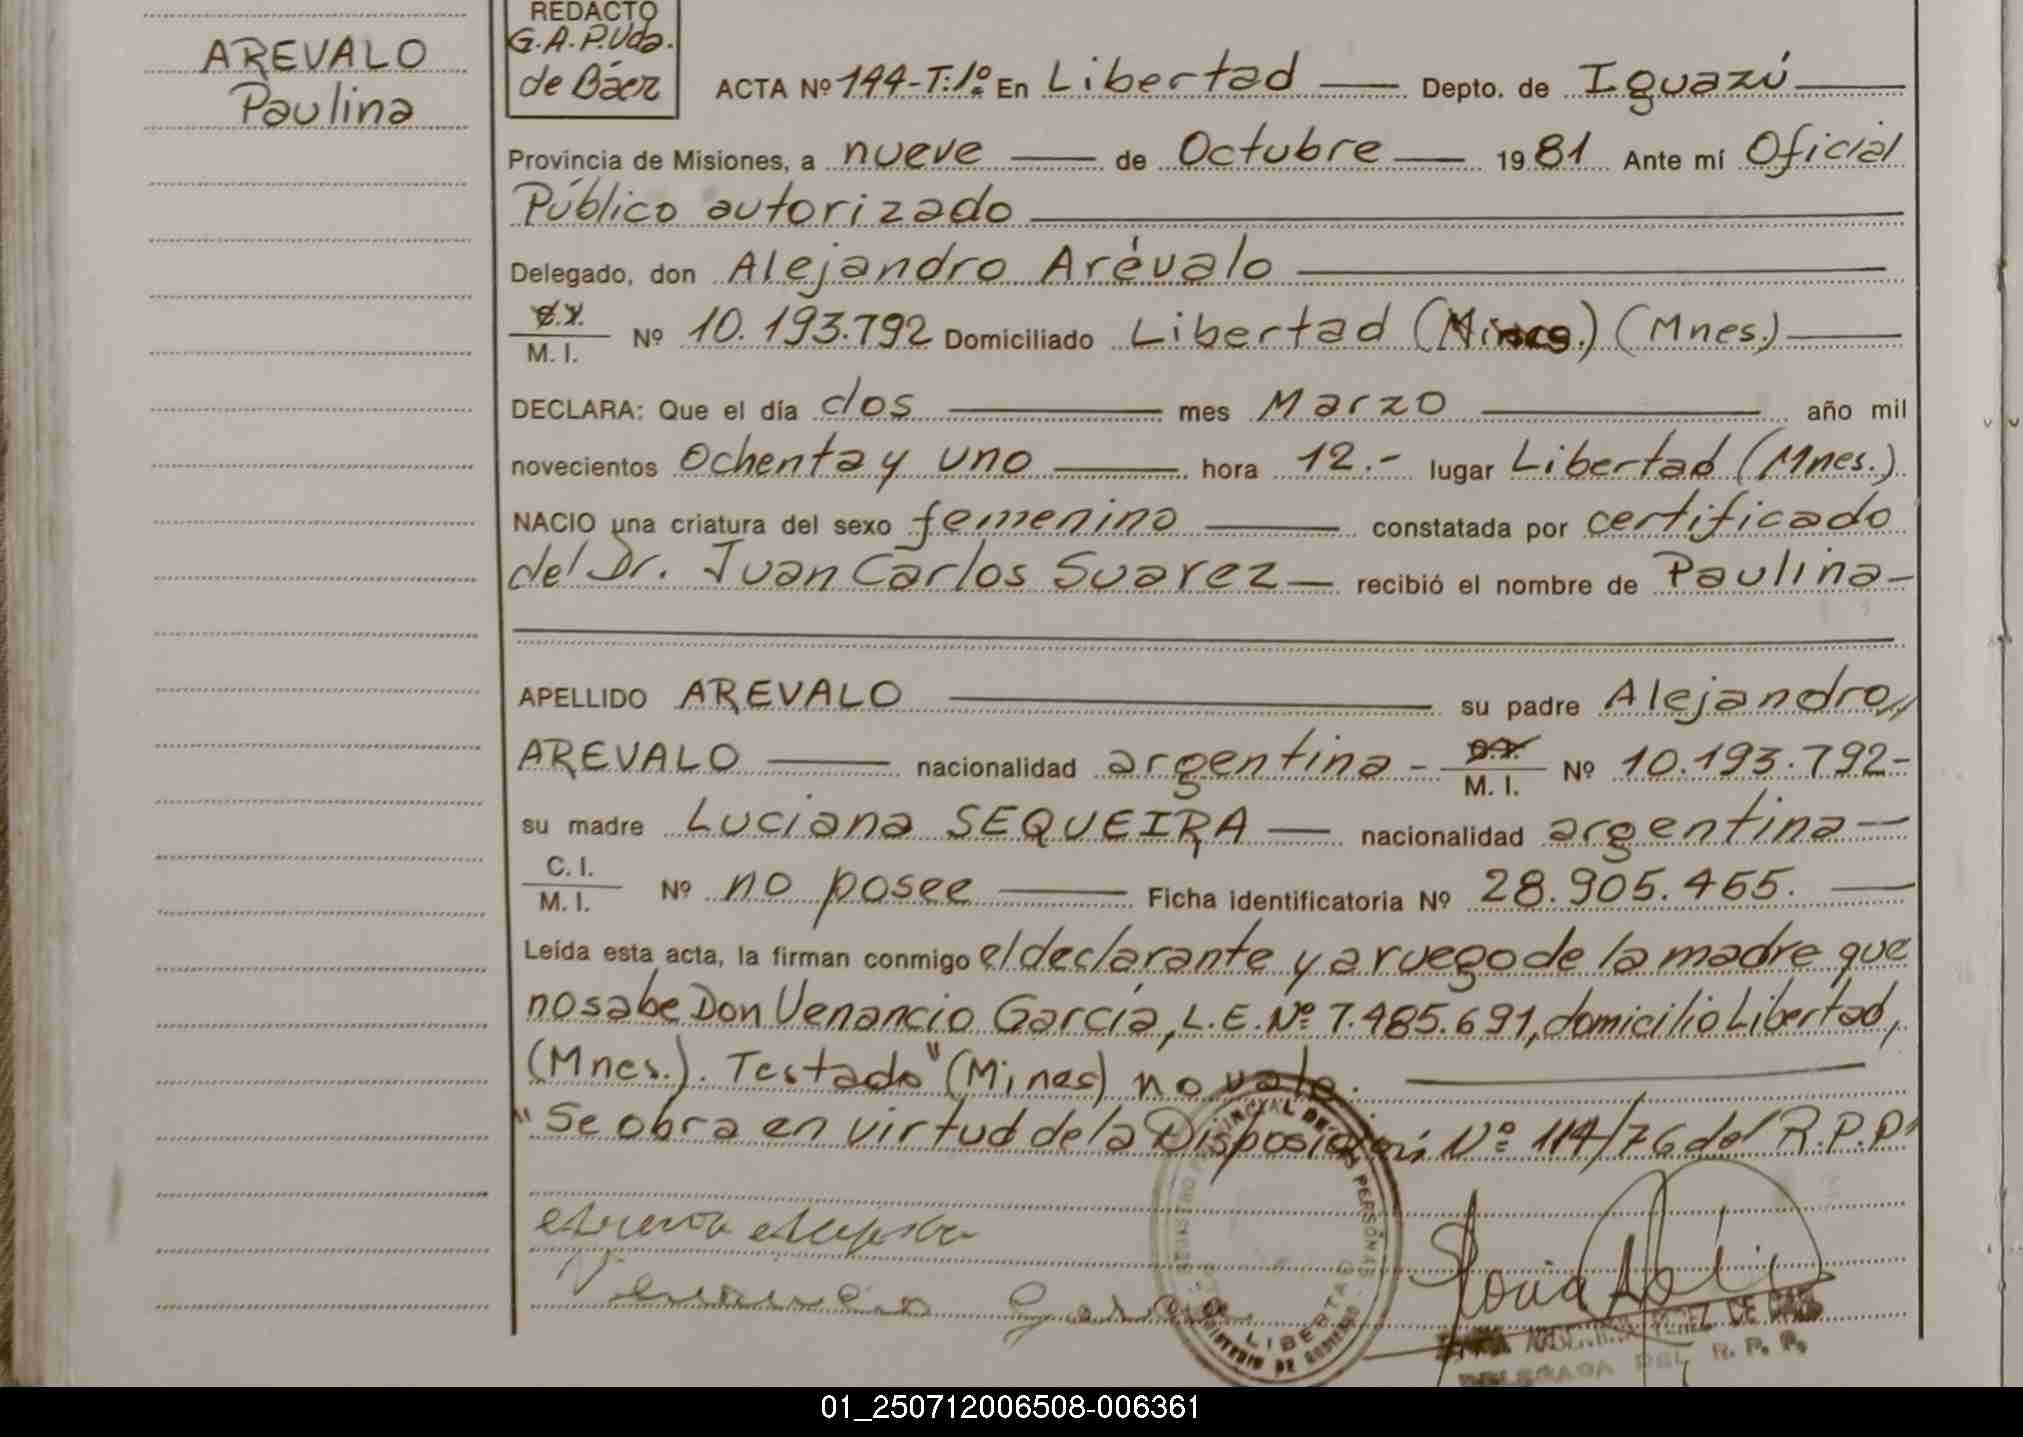 AREVALO
Paulina
REDACTO
G.A.P. Vda.
de Báez
ACTA Nº 144-T:1º En Libertad Depto. de Iguazú
Provincia de Misiones, a nueve de Octubre 1981 Ante mí Oficial
Público autorizado
Delegado, don Alejandro Arévalo
C.I.
M. I. Nº 10.193.792 Domiciliado Libertad (Mines.) (Mnes.)
DECLARA: Que el día dos mes Marzo año mil
novecientos Ochenta y uno hora 12.- lugar Libertad (Mnes.)
NACIO una criatura del sexo femenino constatada por certificado
del Dr. Juan Carlos Suarez recibió el nombre de Paulina-
APELLIDO AREVALO su padre Alejandro,,
AREVALO nacionalidad argentina - M. I. Nº 10.193.792-
su madre Luciana SEQUEIRA nacionalidad argentina
C. I.
M. I. Nº no posee Ficha identificatoria Nº 28.905.465.
Leída esta acta, la firman conmigo el declarante y a ruego de la madre que
no sabe Don Venancio García, L.E. Nº 7.485.691, domicilio Libertad,
(Mnes.). Testado "(Mines) no vale.
"Se obra en virtud de la Disposición Nº 114/76 del R.P.P"
Venancio Garcia
REGISTRO PROVINCIAL DE LAS PERSONAS
LIBERTAD
MINISTERIO DE GOBIERNO
DELEGADA DEL R. P. P.
01_250712006508-006361